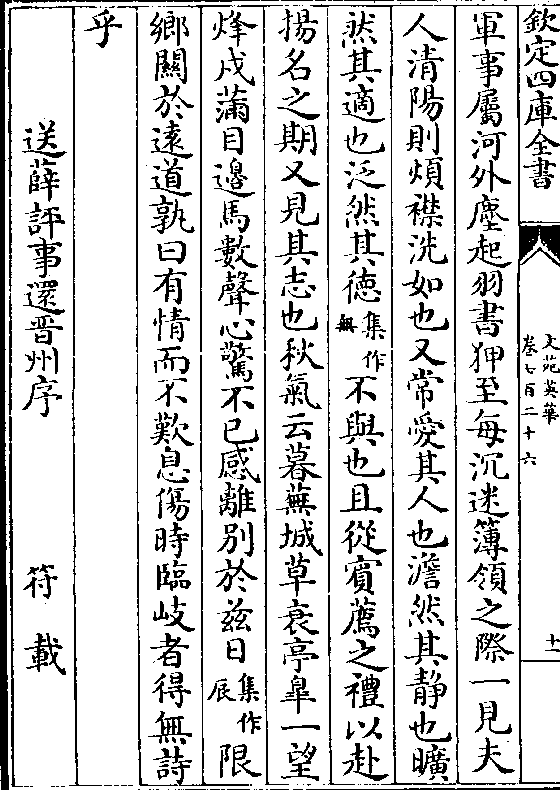 欽定四庫全書
文苑英華
卷七百二十六
十一
軍事屬河外塵起羽書狎至每沉迷簿領之際一見夫
人清陽則煩襟洗如也又常愛其人也澹然其静也曠
然其適也泛然其徳集作無不與也且從賓薦之禮以赴
揚名之期又見其志也秋氣云暮蕪城草衰亭臯一望
烽戍滿目邊馬數聲心驚不已感離别於兹日集作辰限
鄉關於遠道孰曰有情而不歎息傷時臨岐者得無詩
乎
送薛評事還晉州序 符載